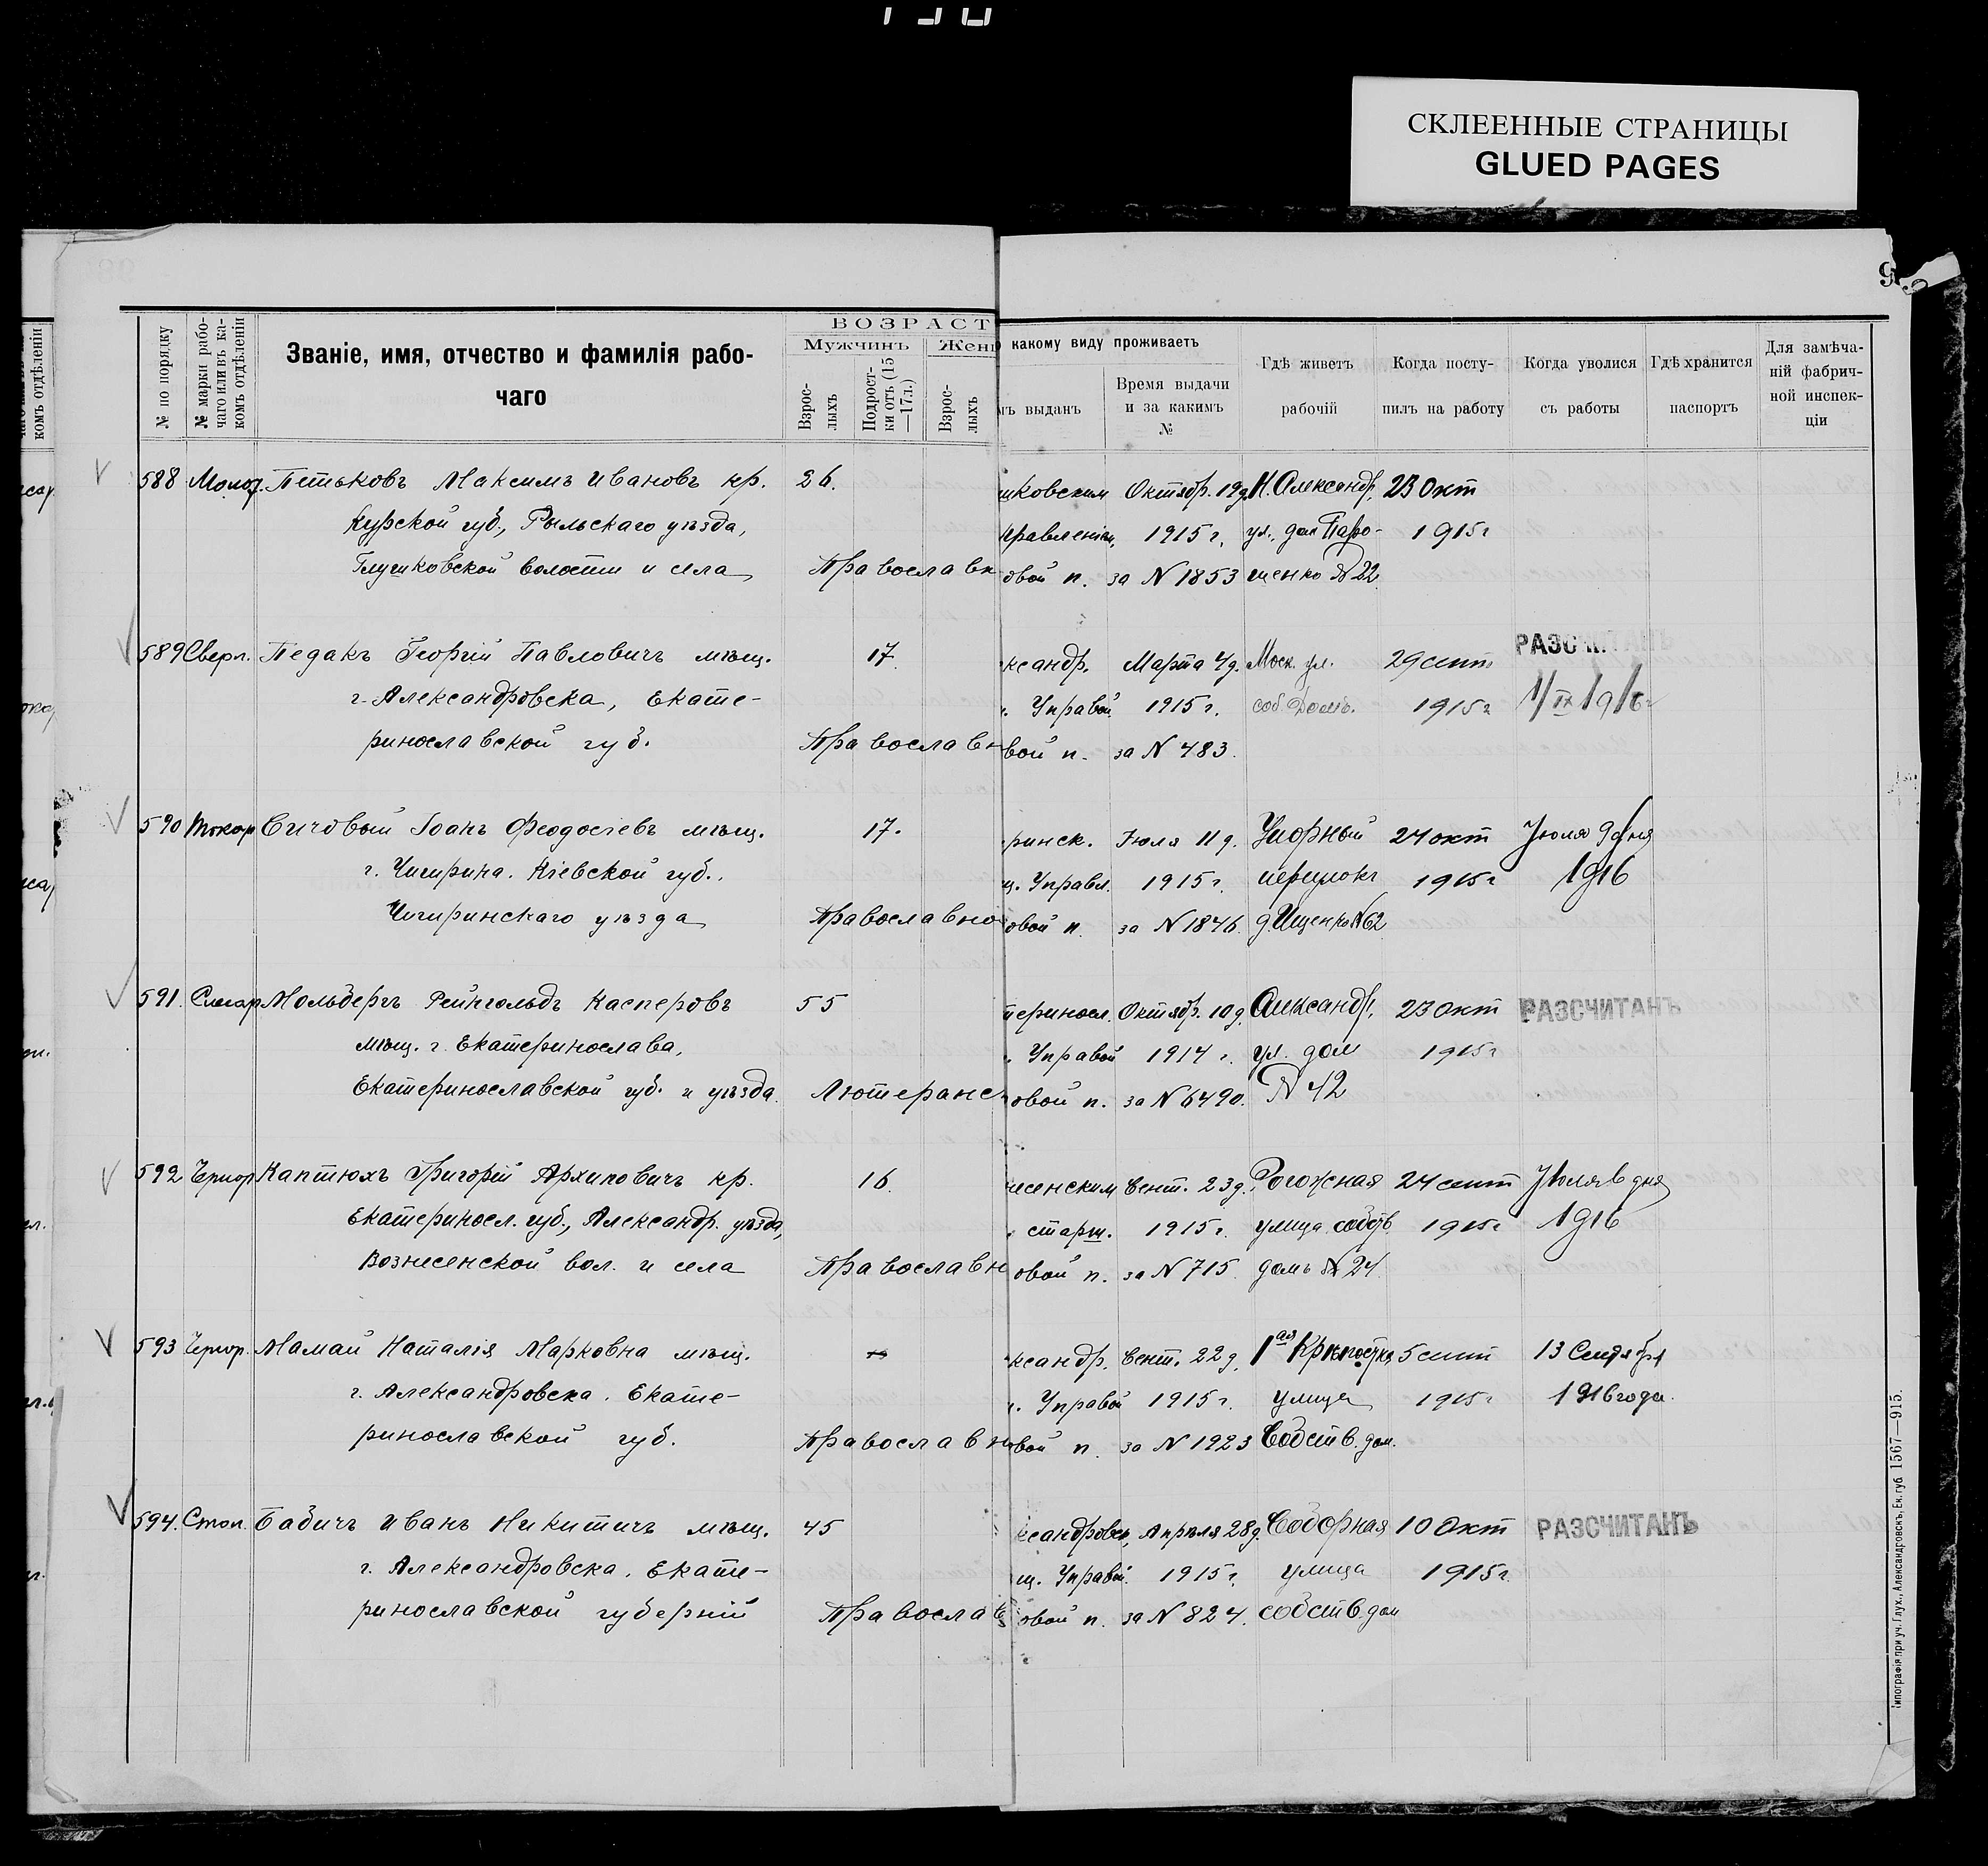 СКЛЕЕННЫЕ СТРАНИЦЫ
GLUED PAGES
комъ отдѣленіи
№ по порядку
№ марки рабо-
чаго или въ ка-
комъ отдѣленіи
Званіе, имя, отчество и фамилія рабо-
чаго
ВОЗРАСТ
Мужчинъ
Взрос-
лыхъ
Подрост-
ки отъ (15
—17 л.)
Взрос-
лыхъ
какому виду проживаетъ
мъ выданъ
Время выдачи
и за какимъ
№
Гдѣ живетъ
рабочій
Когда посту-
пилъ на работу
Когда уволися
съ работы
Гдѣ хранится
паспортъ
Для замѣча-
ній фабрич-
ной инспек-
ціи
588 Петьковъ Максимъ Ивановъ кр. 26. шковским Октябр. 19 д. Н. Александр. 23 окт
Курской губ., Рыльскаго уѣзда, правленіем, 1915 г. ул., дом Паро- 1915 г
Глушковской волости и села Православн овой п. за N 1853 щенко N 22.
589 Сверл. Педакъ Георгій Павловичъ мѣщ. 17. ксандр. Марта 4 д. Моск. ул. 29 сент РАЗСЧИТАНЪ
г. Александровска, Екате- Управой 1915 г. соб Домъ. 1915 г 1/IX 1916 г
ринославской губ. Православн вой п. за N 483.
590 Токар Іоанъ Феодосіевъ мѣщ. 17. ринск. Іюля 11 д. Упорный 24 окт Іюля 9 дня
г. Чигирина. Кіевской губ., щ. Управл. 1915 г. переулокъ 1915 г 1916
Чигиринскаго уѣзда Православно овой п. за N 1846. д. Ищенко N 62
591. Слесар Мольбергъ Рейнгольдъ Касперовъ 55 териносл. Октябр. 10 д. Александр. 23 окт РАЗСЧИТАНЪ
мѣщ. г. Екатеринослава, Управой 1914 г. ул. дом 1915 г
Екатеринославской губ. и уѣзда. Лютеранс овой п. за N 6490. N 42
592 Чернор Каптюхъ Григорій Архиповичъ кр. 16. несенским Сент. 23 д. Рогожная 24 сент Іюля 6 дня
Екатериносл. губ., Александр. уѣзда, старш. 1915 г. улица собств. 1915 г 1916
Вознесенской вол. и села Православн овой п. за N 715. домъ N 24.
593 Чернор. Мамай Наталія Марковна мѣщ. ксандр. Сент. 22 д. 1ая Крѣпостная 5 сент 13 Сентября
г. Александровска. Екате- Управой 1915 г. улица 1915 г 1916 года.
ринославской губ. Православн вой п. за N 1923 Собств. дом.
594. Стол. Бабичъ Иванъ Никитичъ мѣщ. 45 ксандровск, Апрѣля 28 д. Соборная 10 Окт РАЗСЧИТАНЪ
г. Александровска. Екате- щ. Управой. 1915 г. улица 1915 г.
ринославской губерніи Православ овой п. за N 824. собств. дом
Типографія при уч. Глух., Александровскъ, Ек. губ. 1567—915.